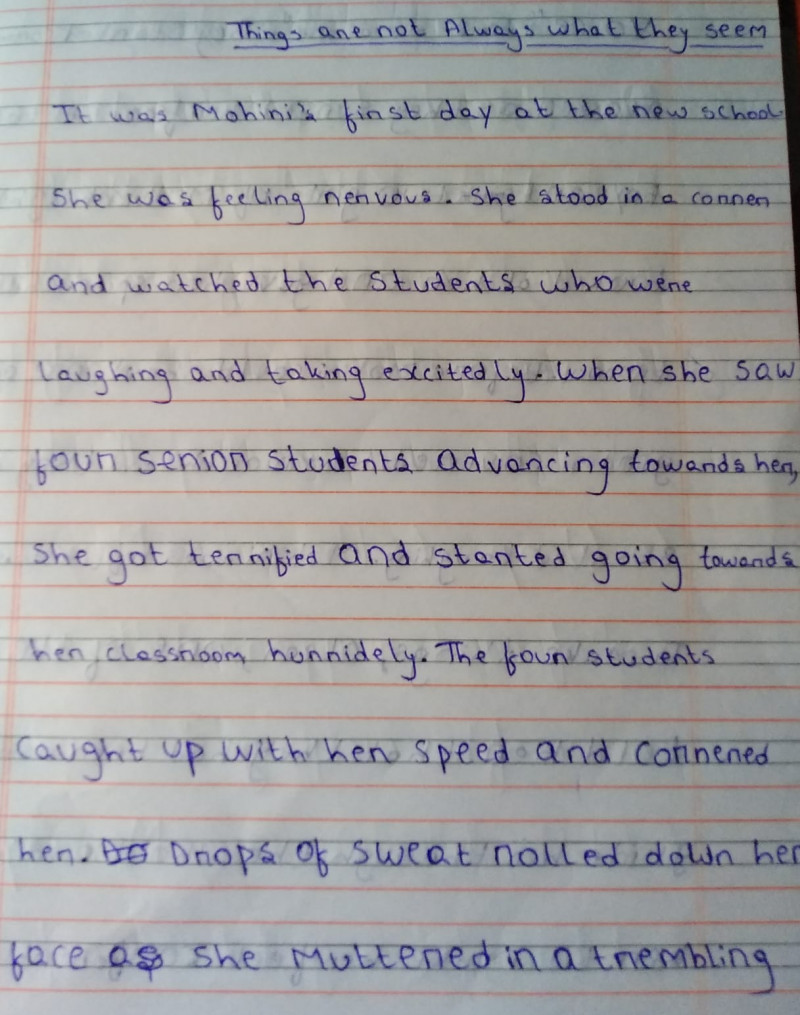 Things are not Always what they seem
It was Mohini's first day at the new school.
She was feeling nervous. She stood in a corner
and watched the students who were
laughing and taking excitedly. When she saw
four senior students advancing towards her,
She got terrified and started going towards
her classroom hurridely. The four students
caught up with her speed and cornered
her. Drops of sweat rolled down her
face as she muttered in a trembling